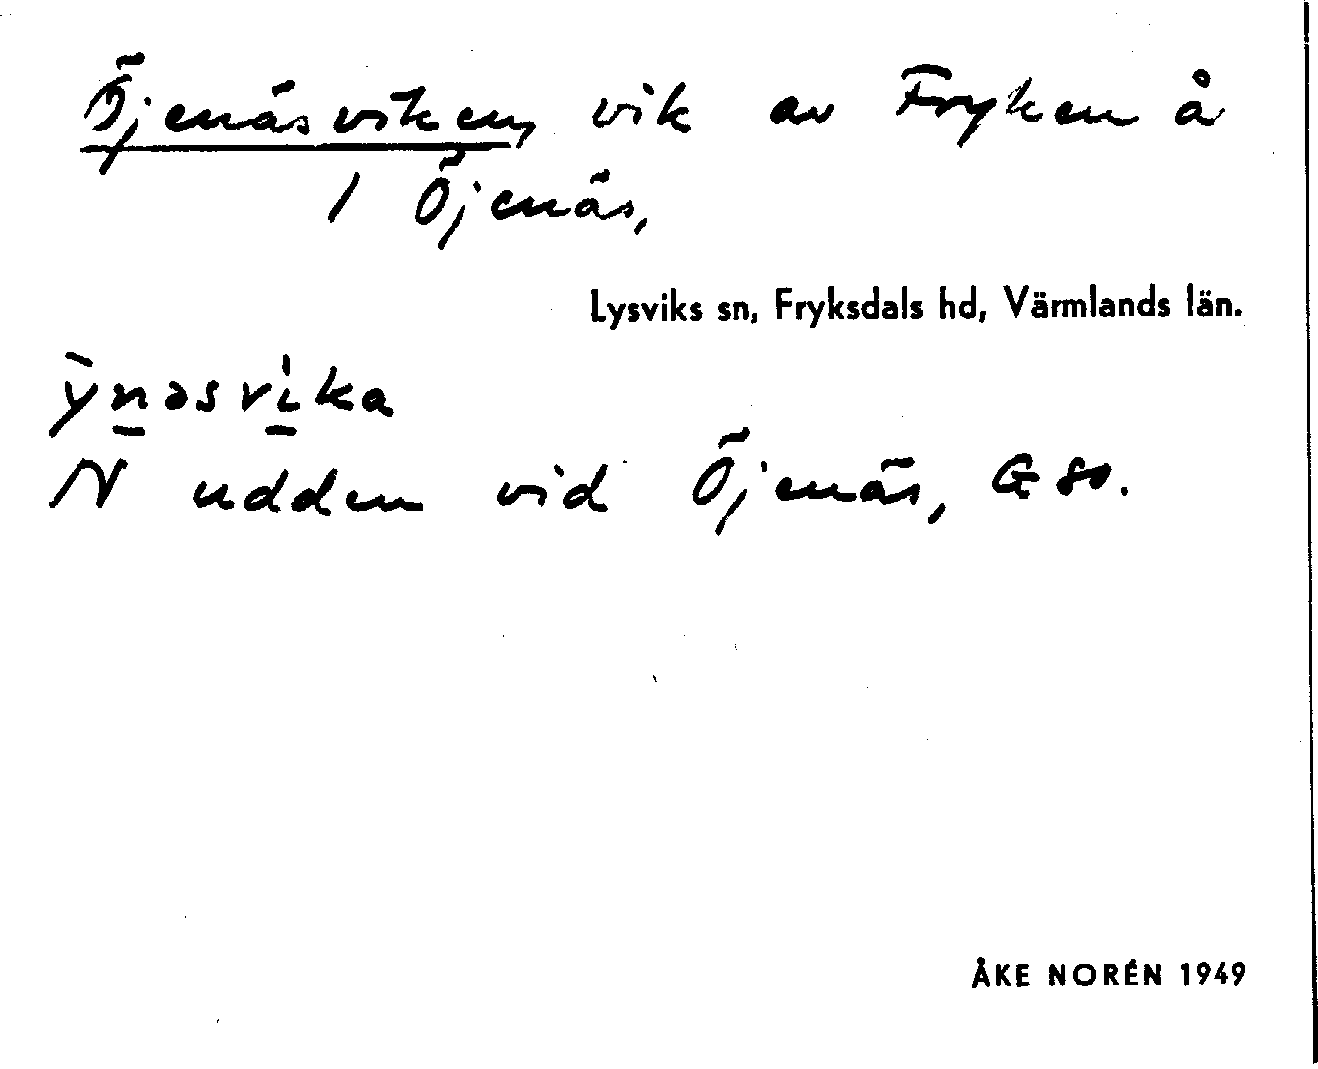 Öjenäsviken, vik av Fryken å
1 Öjenäs,
Lysviks sn, Fryksdals hd, Värmlands län.
ỳn̲əsvi̲̍ka
N udden vid Öjenäs, G so.
ÅKE NORÉN 1949